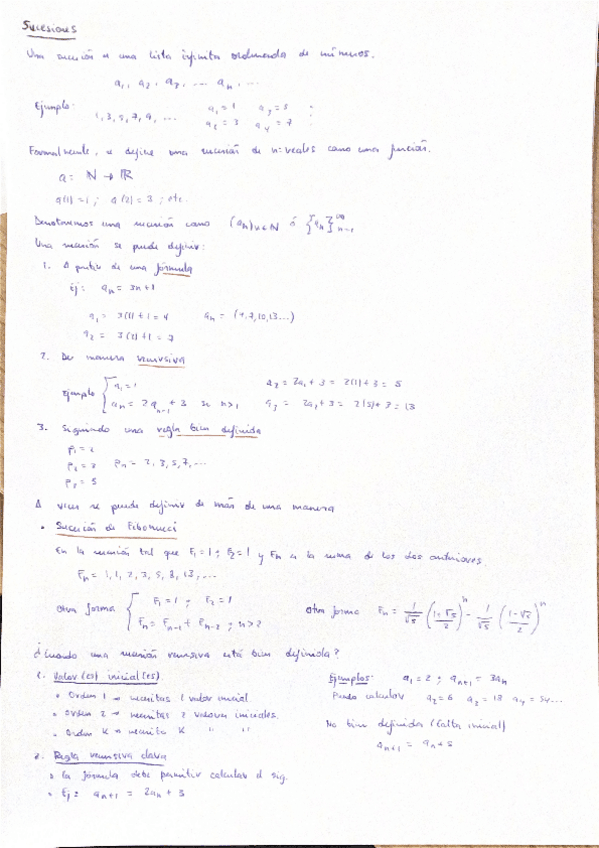 Sucesiones
Una sucesión es una lista infinita ordenada de números.
a₁, a₂, a₃, ... aₙ, ...
Ejemplo: 1, 3, 5, 7, 9, ... a₁ = 1 a₃ = 5
a₂ = 3 a₄ = 7
Formalmente, se define una sucesión de nº reales como una función.
a: ℕ → ℝ
a(1) = 1 ; a(2) = 3 ; etc.
Denotaremos una sucesión como (aₙ)n∈ℕ ó {aₙ}∞n=1
Una sucesión se puede definir:
1. A partir de una fórmula
Ej: aₙ = 3n+1
a₁ = 3(1)+1 = 4 aₙ = (4,7,10,13...)
a₂ = 3(2)+1 = 7
2. De manera recursiva
Ejemplo { a₁ = 1 a₂ = 2a₁ + 3 = 2(1)+3 = 5
aₙ = 2aₙ₋₁ + 3 se n>1 = 2(5)+3 = 13
3. Siguiendo una regla bien definida
p₁ = 2
p₂ = 3 pₙ = 2, 3, 5, 7, ...
p₃ = 5
A veces se puede definir de más de una manera
• Sucesión de Fibonacci
En la sucesión tal que F₁ = 1 ; F₂ = 1 y Fₙ es la suma de los dos anteriores.
Fₙ = 1, 1, 2, 3, 5, 8, 13, ...
Otra forma { F₁ = 1 ; F₂ = 1 Otra forma Fₙ = 1/√5 (1+√5/2)ⁿ - 1/√5 (1-√5/2)ⁿ
Fₙ = Fₙ₋₁ + Fₙ₋₂ ; n>2
¿Cuando una sucesión recursiva está bien definida?
1. Valor(es) inicial(es). Ejemplos: a₁ = 2 ; aₙ₊₁ = 3aₙ
• Orden 1 → necesitas 1 valor inicial Puedo calcular a₂ = 6 a₃ = 18 a₄ = 54...
• Orden 2 → necesitas 2 valores iniciales. No bien definida (falta inicial)
• Orden K → necesito K " " aₙ₊₁ = aₙ + 5
2. Regla recursiva clara
• La fórmula debe permitir calcular el sig.
• Ej: aₙ₊₁ = 2aₙ + 3